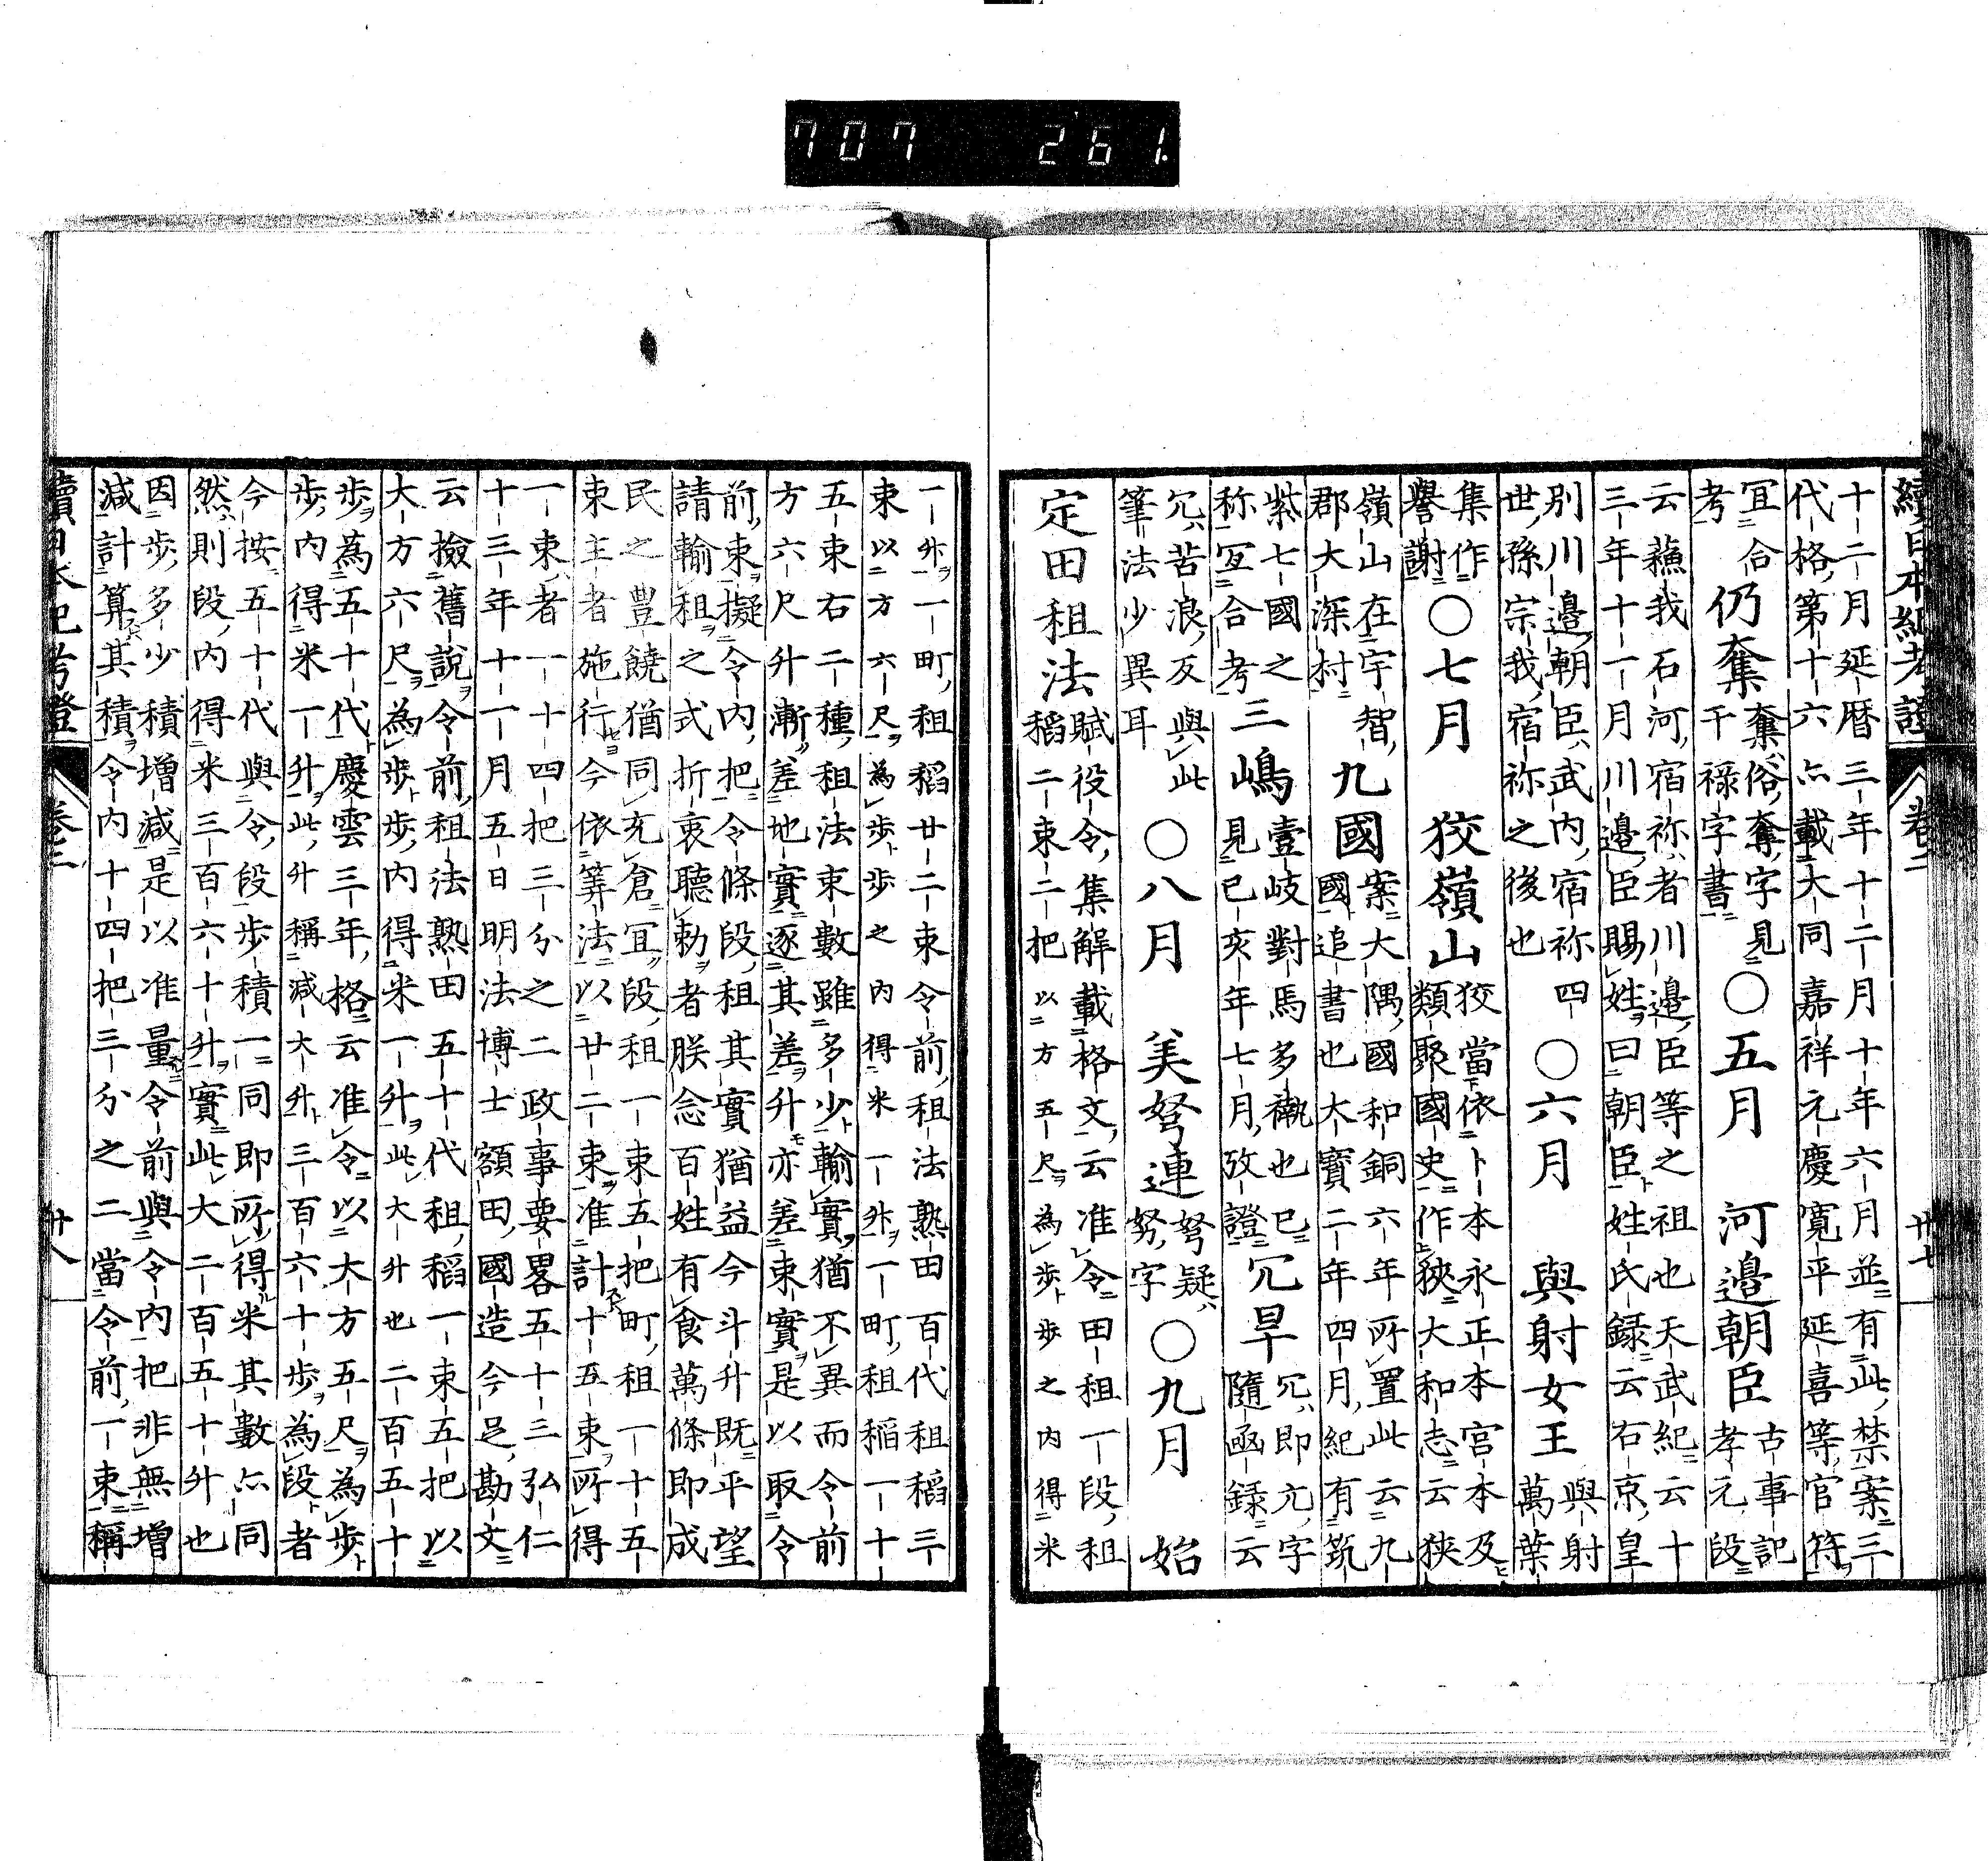 707 261.
續日本紀考證 卷二 廿七
十二月延曆三年十二月十年六月並有此禁案三
代格第十六亦載大同嘉祥元慶寬平延喜等官符
宜合考 仍奪 奪俗奪字見干祿字書 ○五月 河邊朝臣 古事記孝元段
云蘇我石河宿祢者川邊臣等之祖也天武紀云十
三年十一月川邊臣賜姓曰朝臣姓氏錄云右京皇
別川邊朝臣武内宿祢四世孫宗我宿祢之後也 ○六月 與射女王 與射萬葉
集作譽謝 ○七月 狡嶺山 狡當依卜本永正本宮本及類聚國史作狹大和志云狹
嶺山在宇智郡大深村 九國 案大隅國和銅六年所置此云九國追書也大寶二年四月紀有筑
紫七國之称宜合考 三嶋 壹岐對馬多褹也見已亥年七月攷證 亢旱 亢即亢字隨函錄云
亢苦浪反與此筆法少異耳 ○八月 美努連 努疑努字 ○九月 始
定田租法 賦役令集解載格文云准令田租一段租稻二束二把 以方五尺為步步之内得米
一升 一町租稻廿二束令前租法熟田百代租稻三
束 以方六尺為步步之内得米一升 一町租稻一十
五束右二種租法束數雖多少輸實猶不異而令前
方六尺升漸差地實逐其差升亦差束實是以取令
前束擬令内把令條段租其實猶益今斗升既平望
請輸租之式折衷聽勅者朕念百姓有食萬條即成
民之豊饒猶同充倉宜段租一束五把町租一十五
束主者施行今依筭法以廿二束准計十五束所得
一束者一十四把三分之二政事要畧五十三弘仁
十三年十一月五日明法博士額田國造今足勘文
云撿舊說令前租法熟田五十代租稻一束五把以
大方六尺為步步内得米一升此大升也二百五十
步為五十代慶雲三年格云准令以大方五尺為步
步内得米一升此升稱減大升三百六十步為段者
今按五十代與令段步積一同即所得米其數亦同
然則段内得米三百六十升實此大二百五十升也
因步多少積增減是以准量令前與令内把非無增
減計算其積令内十四把三分之二當令前一束稱
續日本紀考證 卷二 廿八